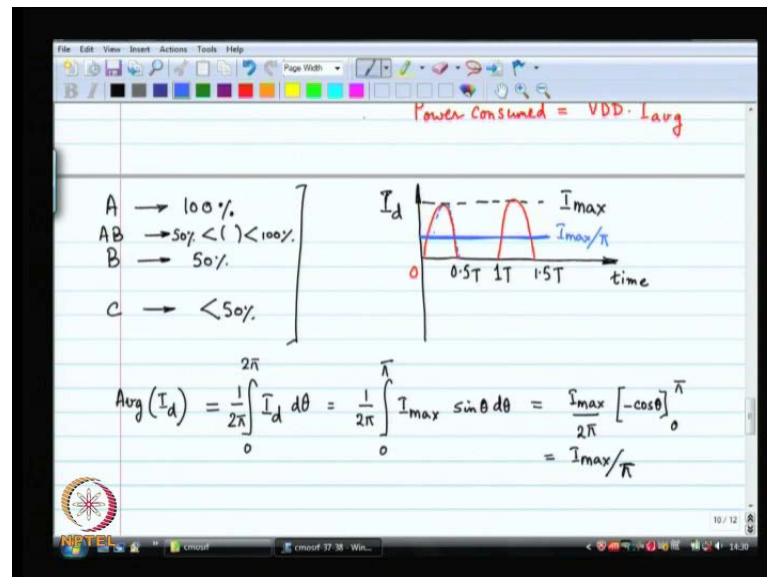 File Edit View Insert Actions Tools Help
Page Width
B I
Power Consumed = VDD. Iavg
A → 100%.
AB → 50% < ( ) < 100%.
B → 50%.
C → < 50%.
Id
Imax
Imax/π
0 0.5T 1T 1.5T time
Avg (Id) = 1/2π ∫₀^2π Id dθ = 1/2π ∫₀^π Imax sinθ dθ = Imax/2π [-cosθ]₀^π
= Imax/π
10 / 12
NPTEL
cmosrf
cmosrf-37-38 - Win...
14:30